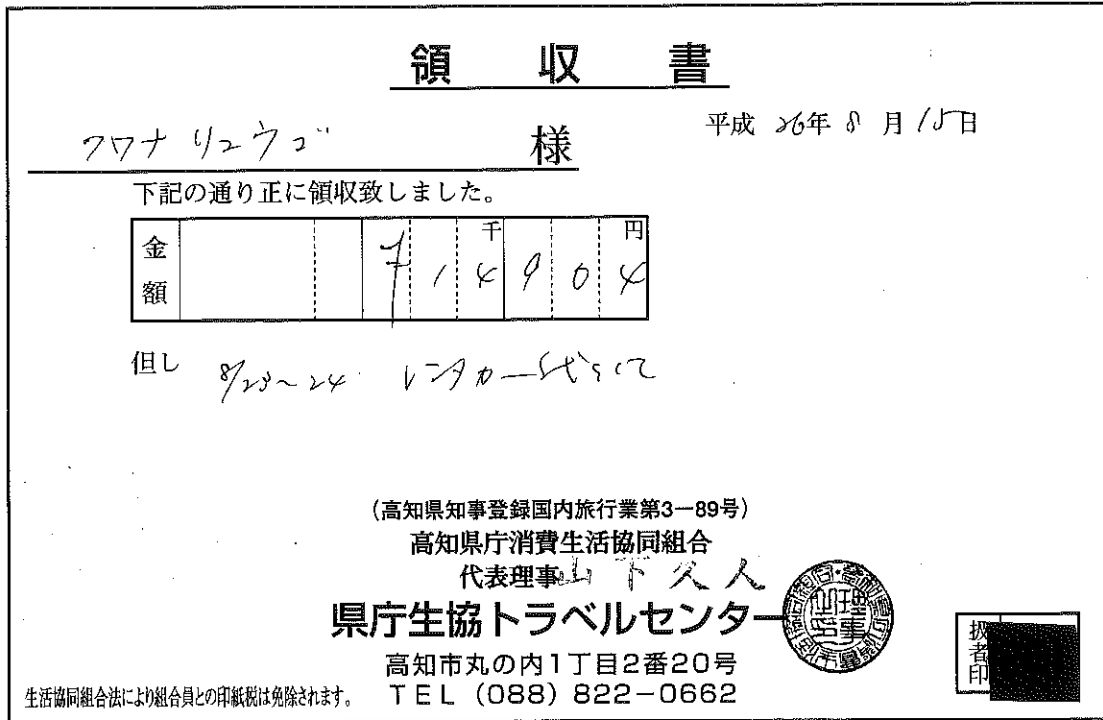 領収書
クワナ リュウゴ 様
平成 26年 8月 15日
下記の通り正に領収致しました。
金額 ¥14904
千 円
但し 8/23~24 レンタカー代として
(高知県知事登録国内旅行業第3-89号)
高知県庁消費生活協同組合
代表理事 山下久人
県庁生協トラベルセンター
高知市丸の内1丁目2番20号
生活協同組合法により組合員との印紙税は免除されます。
TEL (088) 822-0662
扱者印